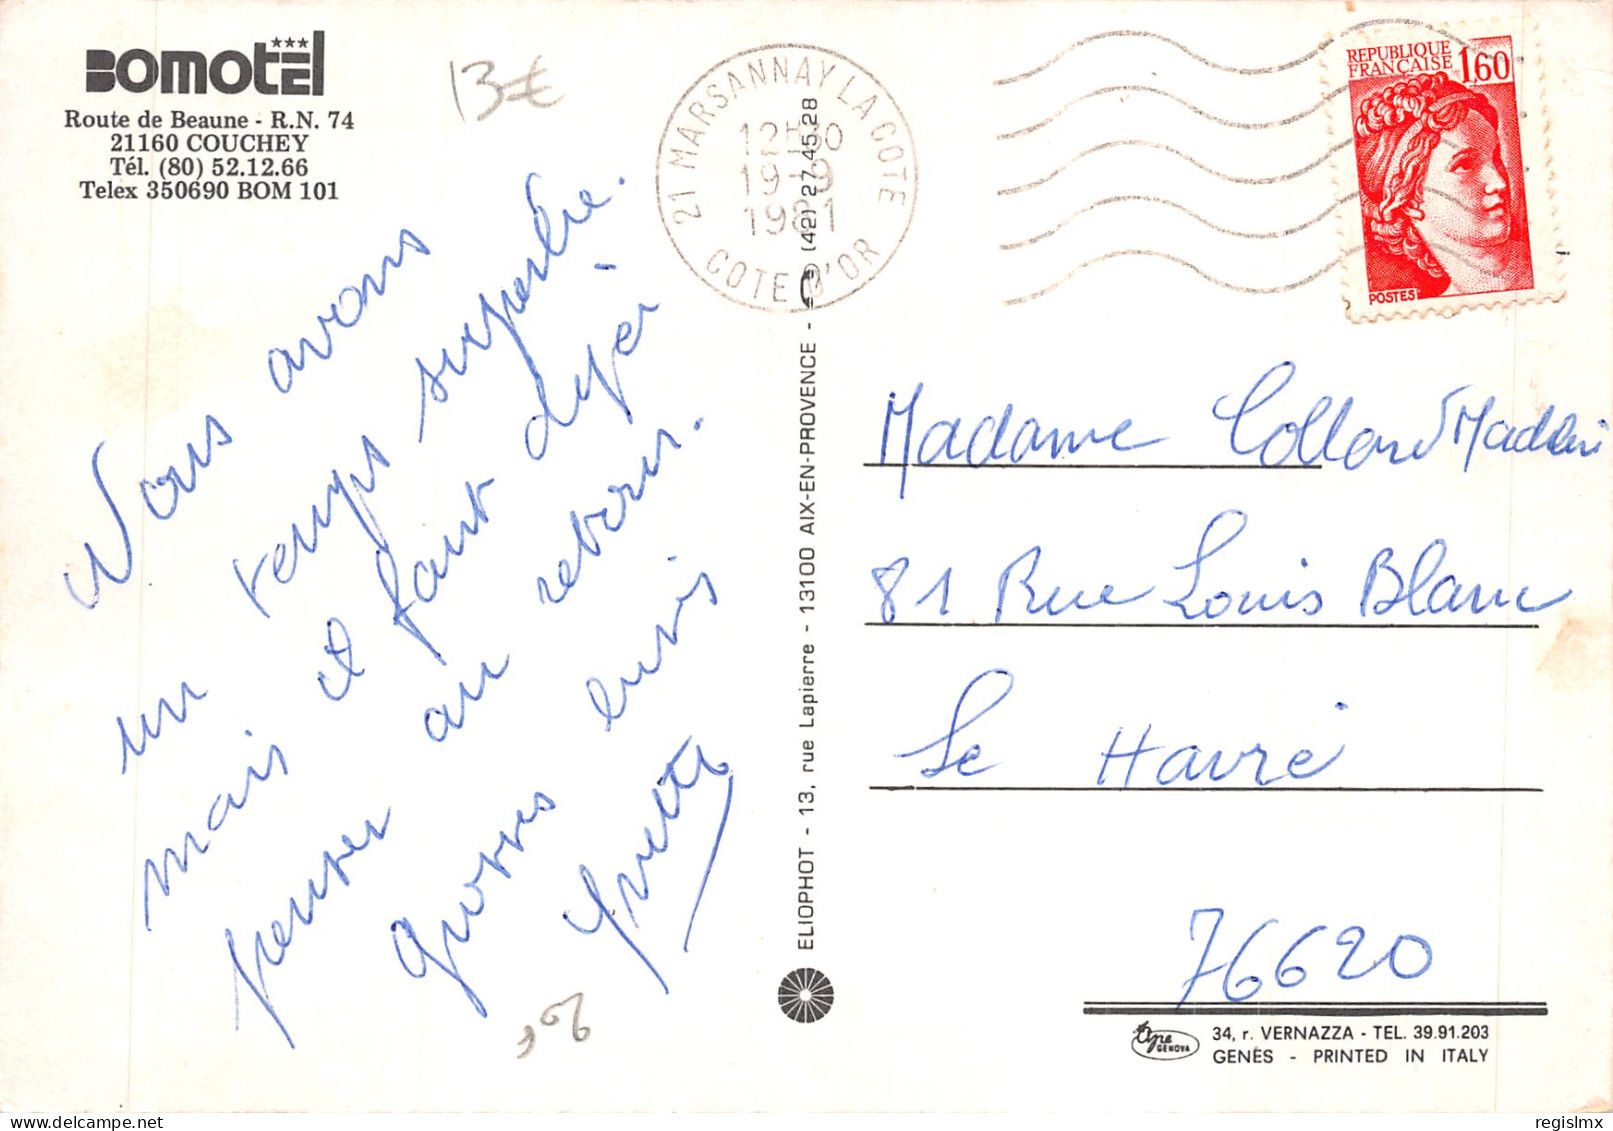 BOMOTEL ***
Route de Beaune - R.N. 74
21160 COUCHEY
Tél. (80) 52.12.66
Telex 350690 BOM 101
13€
21 MARSANNAY LA COTE
12H30
19-9
1981
COTE D'OR
REPUBLIQUE
FRANÇAISE
1,60
POSTES
Nous avons
un temps superbe.
mais il faut déjà
penser au retour.
grosses bises
Yvette
ELIOPHOT - 13, rue Lapierre - 13100 AIX-EN-PROVENCE - (42) 27-45.28
Madame Collard Madelei
81 Rue Louis Blanc
Le Havre
76620
GENOVA
34, r. VERNAZZA - TEL. 39.91.203
GENES - PRINTED IN ITALY
regislmx